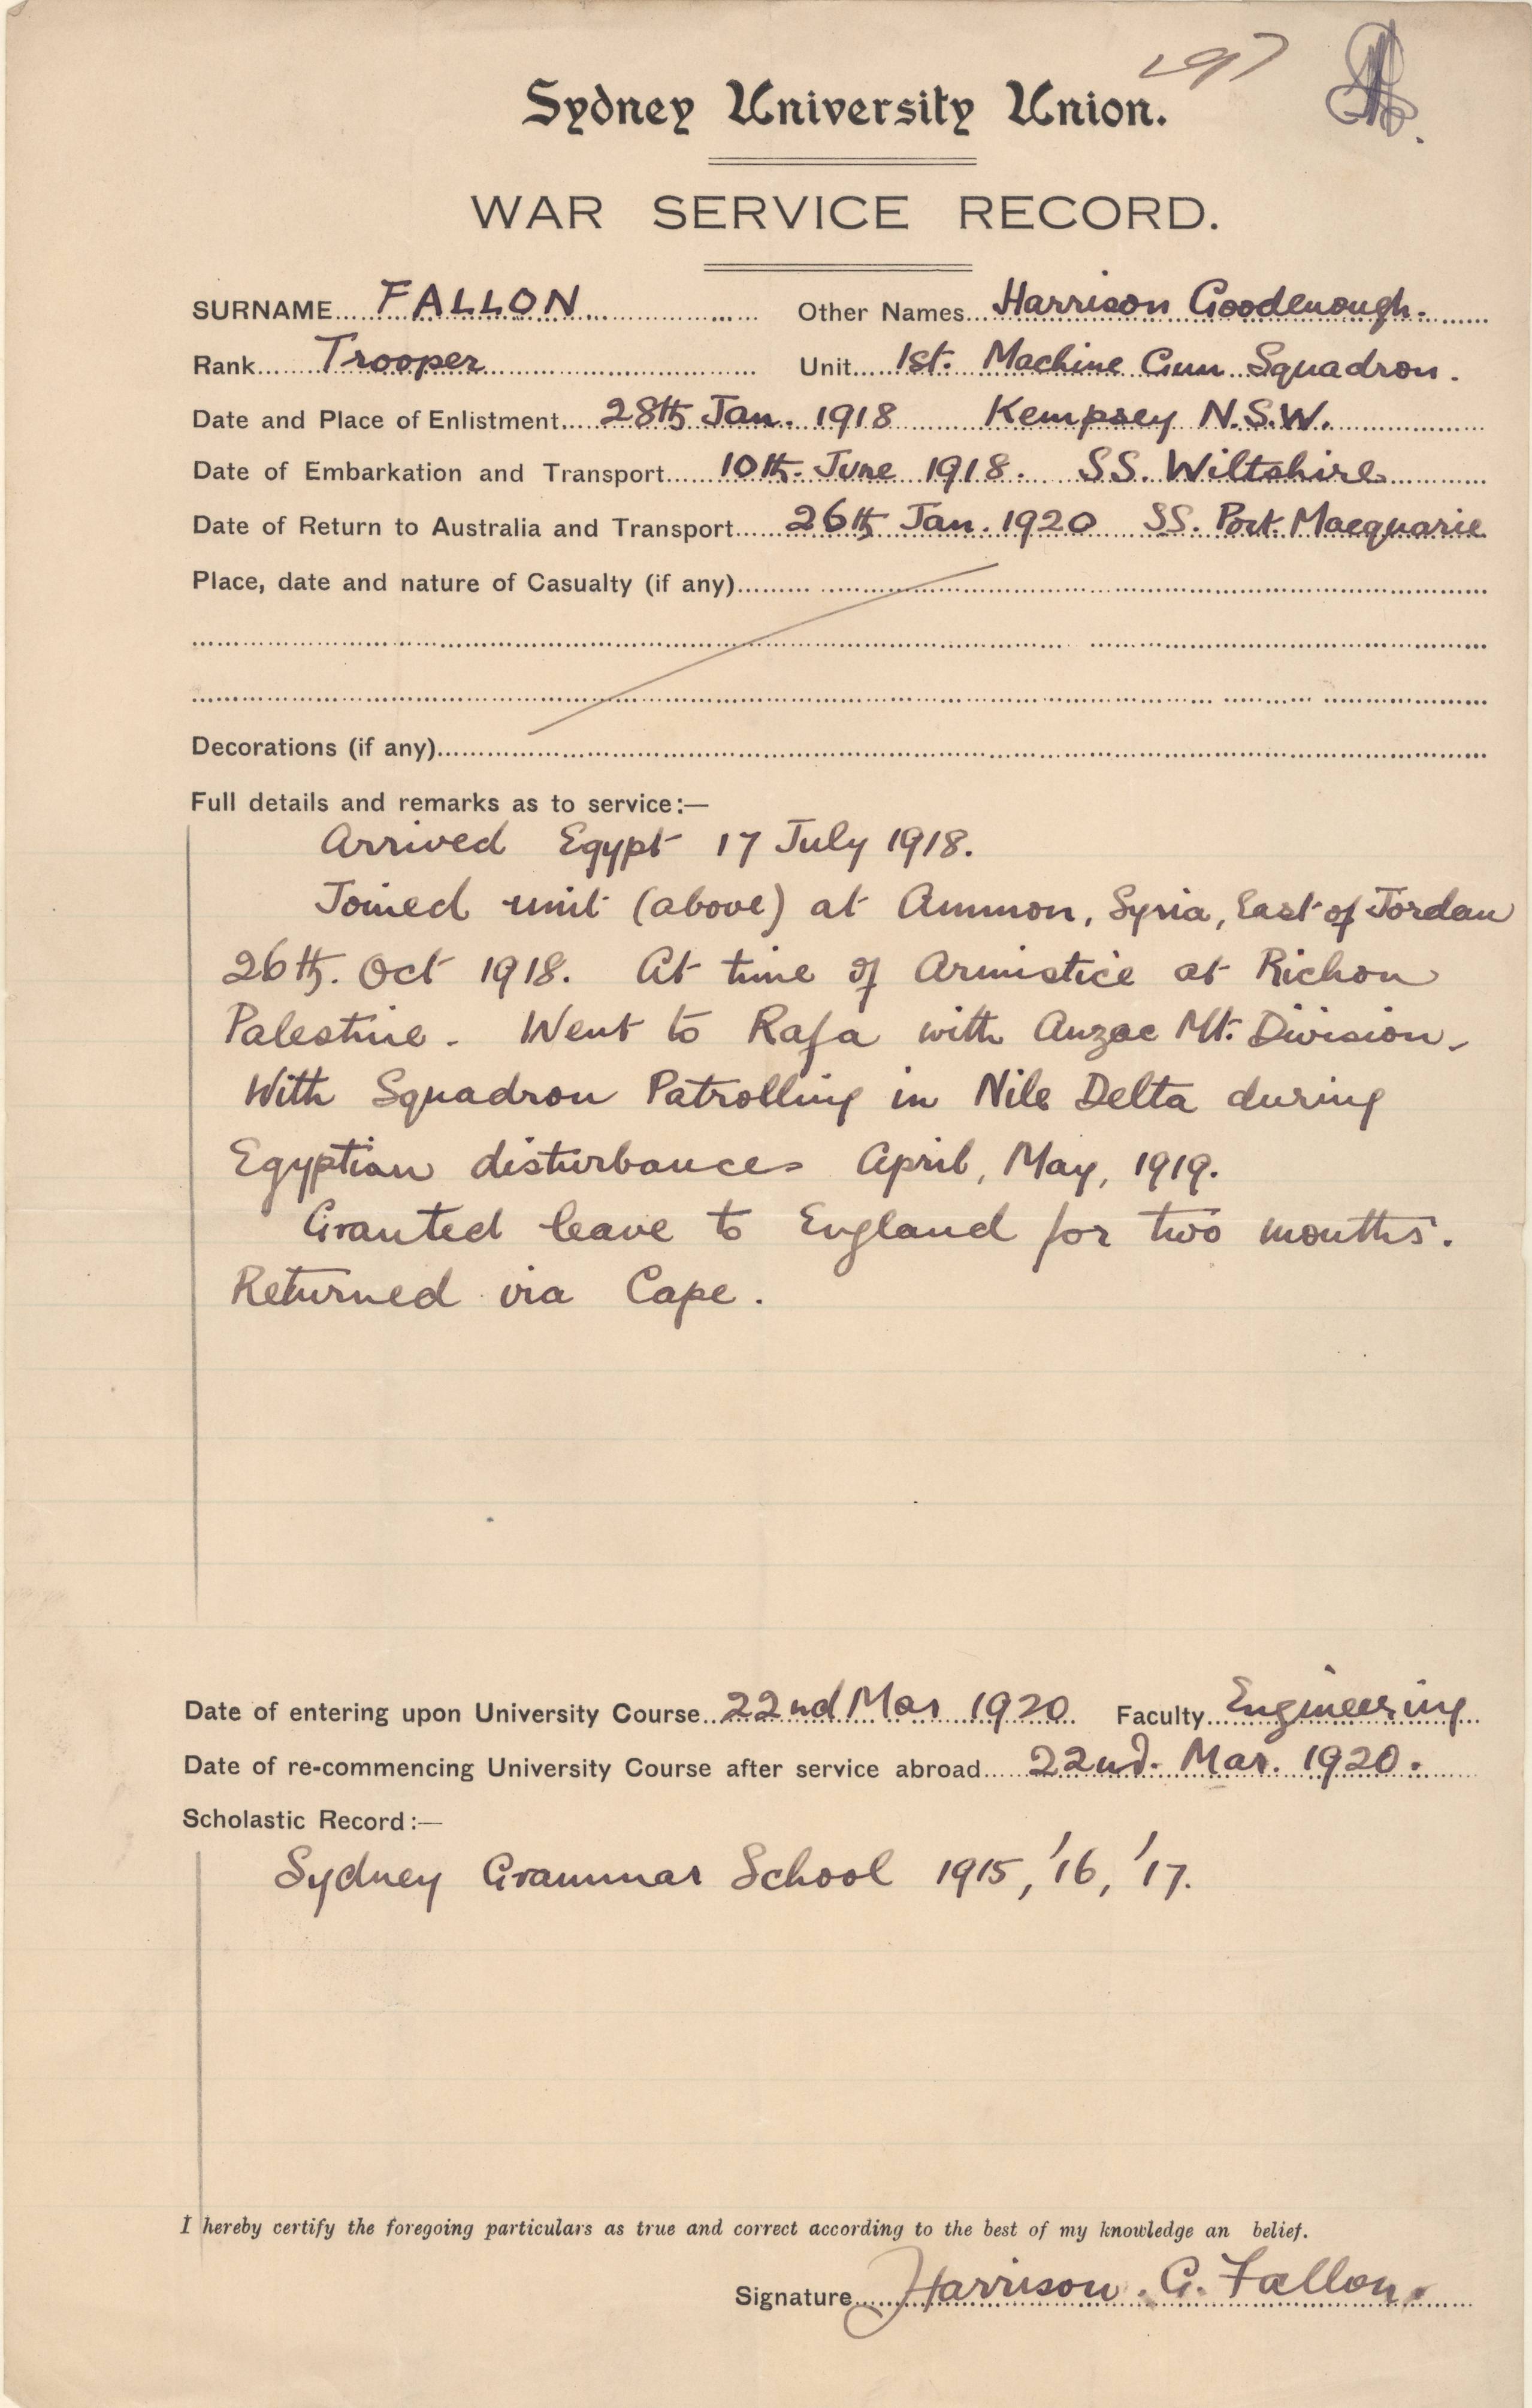 297
Sydney University Union.
WAR SERVICE RECORD.
SURNAME FALLON Other Names Harrison Goodenough.
Rank Trooper Unit 1st. Machine Gun Squadron.
Date and Place of Enlistment 28th Jan. 1918 Kempsey N.S.W.
Date of Embarkation and Transport 10th. June 1918. SS. Wiltshire
Date of Return to Australia and Transport 26th Jan. 1920 SS. Port. Macquarie
Place, date and nature of Casualty (if any)
Decorations (if any)
Full details and remarks as to service:—
Arrived Egypt 17 July 1918.
Joined unit (above) at Ammon, Syria, East of Jordan
26th. Oct 1918. At time of Armistice at Richon
Palestine. Went to Rafa with Anzac Mt. Division.
With Squadron Patrolling in Nile Delta during
Egyptian disturbances April, May, 1919.
Granted leave to England for two months.
Returned via Cape.
Date of entering upon University Course 22nd Mar 1920 Faculty Engineering
Date of re-commencing University Course after service abroad 22nd. Mar. 1920.
Scholastic Record:—
Sydney Grammar School 1915, '16, '17.
I hereby certify the foregoing particulars as true and correct according to the best of my knowledge an belief.
Signature Harrison. G. Fallon.